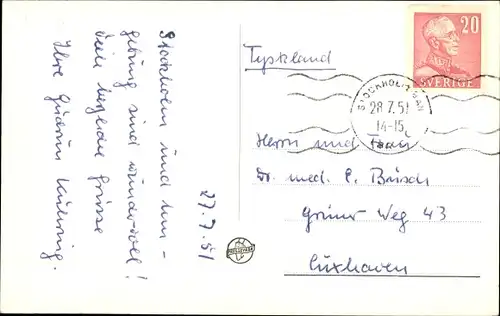 27.7.51
Stockholm und Um-
gebung sind wunder-voll!
Viele herzliche Grüsse
Ihre Gudrun
Tyskland
20
SVERIGE
STOCKHOLM BAN
28.7.51
14-15
Herrn und Frau
Dr. med. C. Büsch
Grüner Weg 43
Cuxhaven